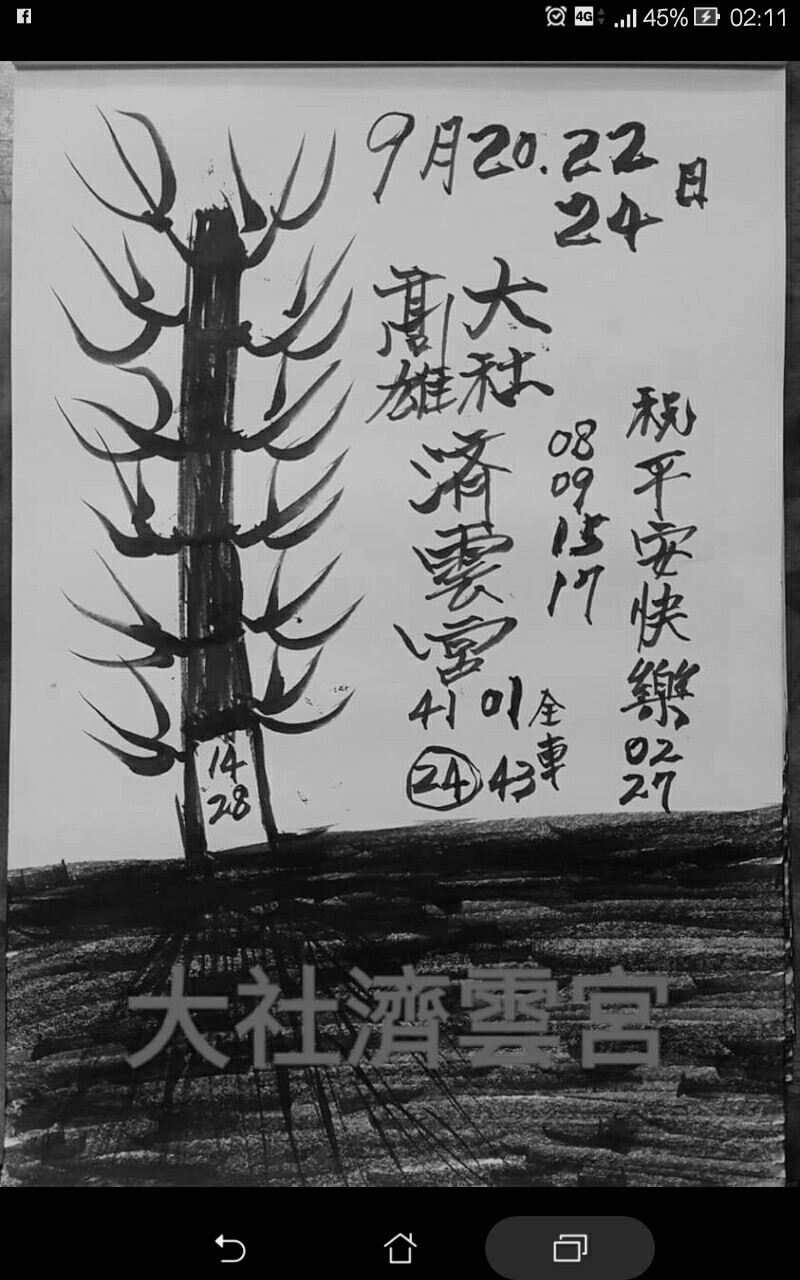 45% 02:11
4G
9月20.22
24日
高雄
大社
濟雲宮
08
09
15
17
祝平安快樂
02
27
41 01 全車
24 43
14
28
大社濟雲宮